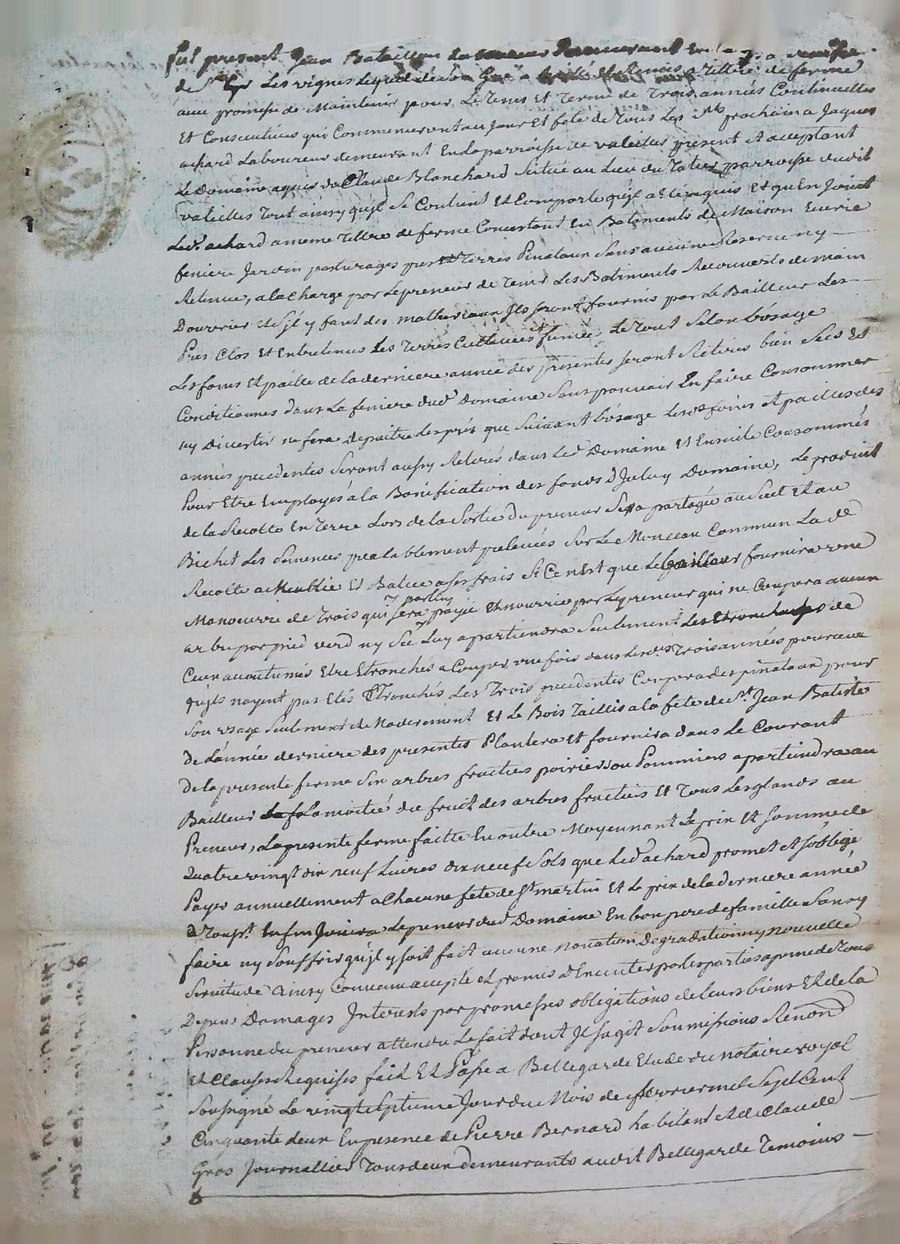 fut present Jean Batailllon demeurant en la
de St Cyr Les vignes Lequel de son gré a titre de ferme
avec promesse de Maintenir pour Le tems Et Terme de Trois années Continuelles
Et Consecutives qui Commenceront au Jour Et fete de Tous Les Sts prochain a Jaques
achard Laboureur demeurant En la parroisse de valeilles present Et acceptant
Le Domaine aquis de Claude Blanchard Situé au Lieu du parroisse dudit
valeilles Tout ainsy qu'jl Se Contient Et Comporte qu'jl a Et En Jouit
Led. achard a meme Tittre de ferme Concistant En Batiments de Maison Ecurie
feniere Jardin pasturages pres Terres Pinataux Sans aucune Reserve ny
Retenue, a la Charge par Le preneur de Tenir Les Batiments Recouverts de main
Douvrier Et Sj y faut des matheriaux jls seront fournis par Le Bailleur Les
Pres Clos Et Entretenus Les Terres Cultivées fumée, Le Tout Selon L'usage
Les foins Et paille de la derniere année des presentes seront Retirés bien Secs Et
Conditionnes dans La feniere dud Domaine Sans pouvoir En faire Consommer
ny Divertir ne fera Depaitre Les pres que Suivant L'usage Les foins Et pailles des
annees precedentes Seront aussy Retirés dans Led Domaine Et Ensuite Consommés
Pour Etre Employés a la Bonification des fonds d'Jceluy Domaine, Le produit
de la Recolte En Terre Lors de la Sortie du preneur Sera partagée au Seul Et au
Bichet Les Semences prealablement prelevées Sur Le Monceau Commun La de
Recolte a Et Batue a ses frais Si Ce n'est que Le Bailleur fournira une
Manoeuvre de Trois qui sera payée Et nourrie par Le preneur qui ne Coupera aucun
arbre par pied verd ny Sec Luy apartiendra Seulement Les Etronchages de
Ceux accoutumés Etre Etronchés a Couper une fois dans Lesd Trois années pourvu
qu'jls nayent pas Etés Etronchés Les Trois precedentes Coupera des pinataux pour
Son usage Seulement de Moderement Et Le Bois Taillis a la fete de St Jean Batiste
de Lannée derniere des presentes Plantera Et fournira dans Le Courant
de la presente ferme Six arbres fruitiers poiriers ou Pommiers apartiendra au
Bailleur La moitié du fruit des arbres fruitiers Et Tous Les glands au
Preneur, La presente ferme faitte En outre Moyennant Le prix Et Somme de
Quatre vingt dix neuf Livres dix neuf Sols que Led achard promet Et s'oblige
Payer annuellement a Chacune fete de St martin Et Le prix de la derniere année
Enfin Jouira Le preneur dud Domaine En bon pere de famille Sans y
faire ny Souffrir qu'jl y soit fait aucune novation Degradation ny nouvelle
Servitude ainsy Convenu accepté et promis d'Executer par Les parties a peine de Tous
Depens Domages Interests par promesses obligations de Leurs biens Et de la
Personne du preneur attendu Le fait dont Jl sagit Soumissions Renond
Et Clauses Requises fait Et Passé a Bellegarde Etude du notaire royal
Soussigné Le vingtseptieme Jour du Mois de fevrier mil Sept Cent
Cinquante deux En presence de Pierre Bernard habitant Et de Claude
Gros Journallier Tous deux demeurants audit Bellegarde Temoins